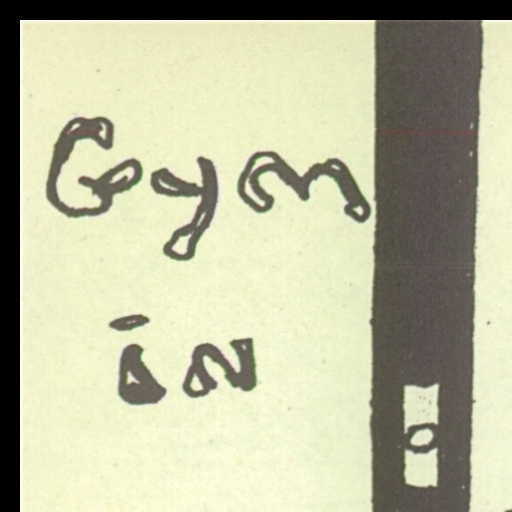 Gym
in